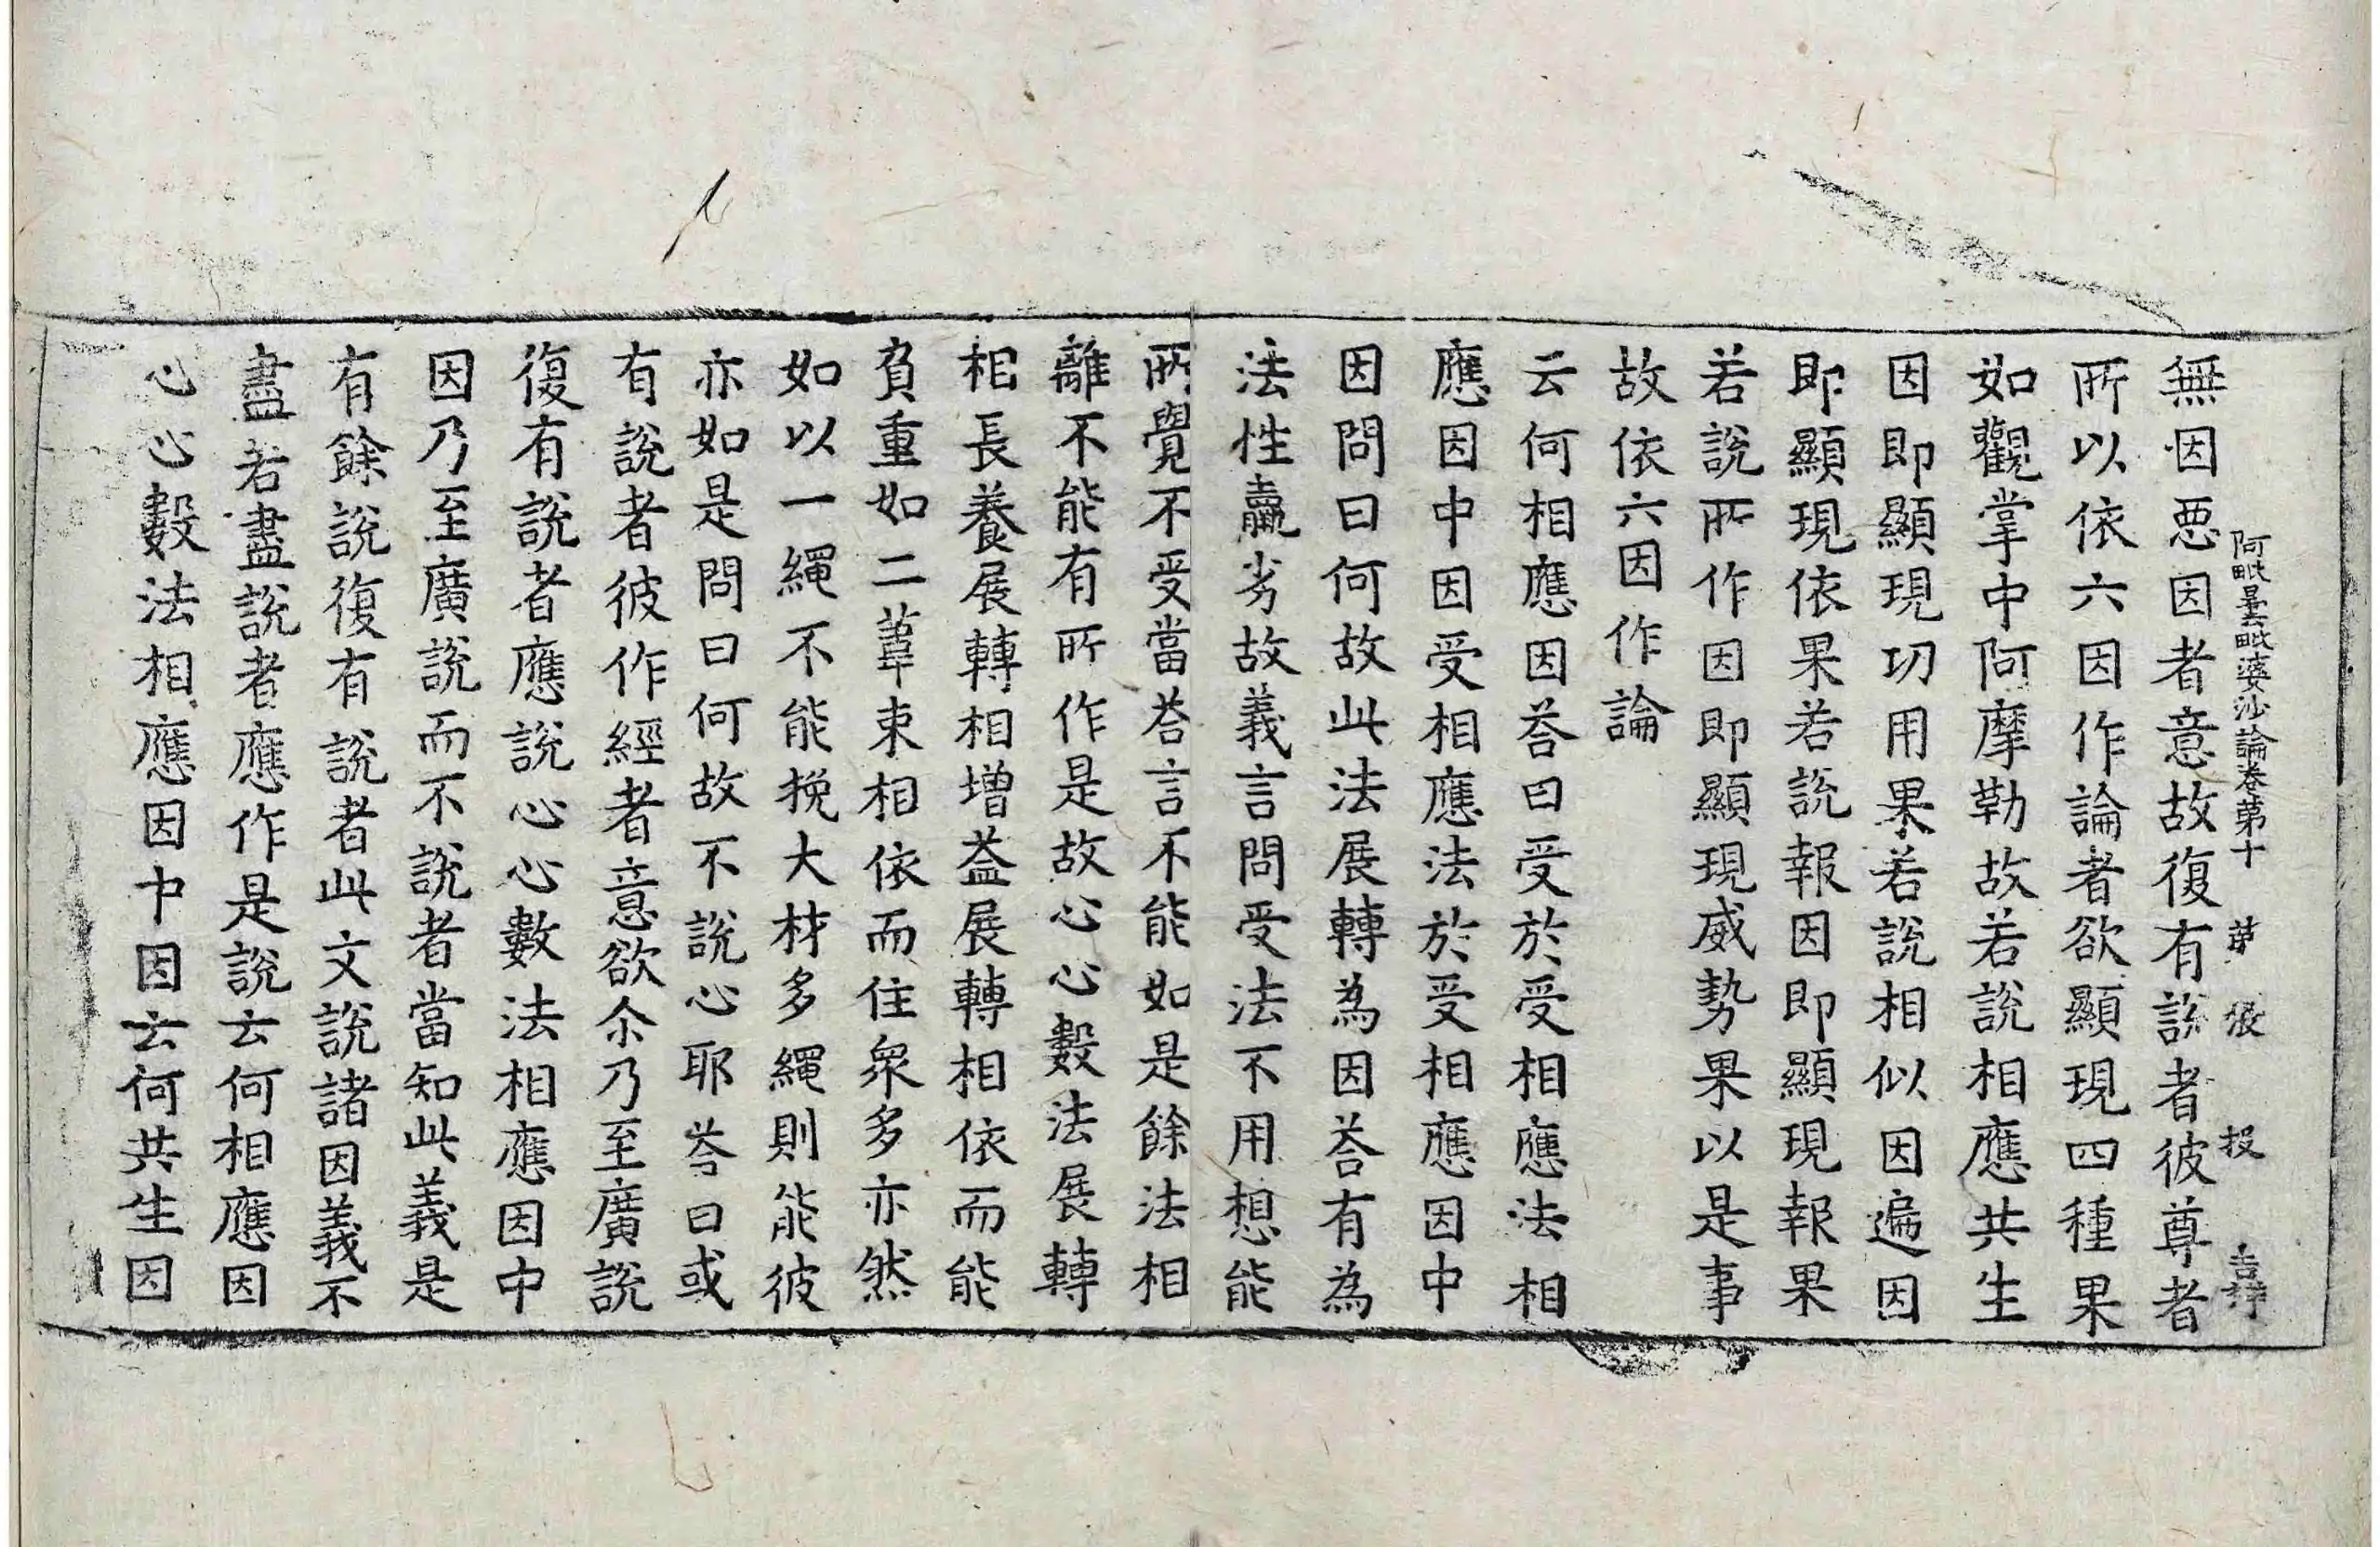 阿毗曇毗婆沙論卷第十 第 張 投
無因惡因者意故復有說者彼尊者
所以依六因作論者欲顯現四種果
如觀掌中阿摩勒故若說相應共生
因即顯現㓛用果若說相似因遍因
即顯現依果若說報因即顯現報果
若說所作因即顯現威勢果以是事
故依六因作論
云何相應因荅曰受於受相應法相
應因中因受相應法於受相應因中
因問曰何故此法展轉為因荅有為
法性羸劣故義言問受法不用想能
所覺不受當荅言不能如是餘法相
離不能有所作是故心心數法展轉
相長養展轉相增益展轉相依而能
負重如二葦束相依而住衆多亦然
如以一繩不能挽大材多繩則能彼
亦如是問曰何故不說心耶荅曰或
有說者彼作經者意欲尒乃至廣說
復有說者應說心心數法相應因中
因乃至廣說而不說者當知此義是
有餘說復有說者此文說諸因義不
盡若盡說者應作是說云何相應因
心心數法相應因中因云何共生因